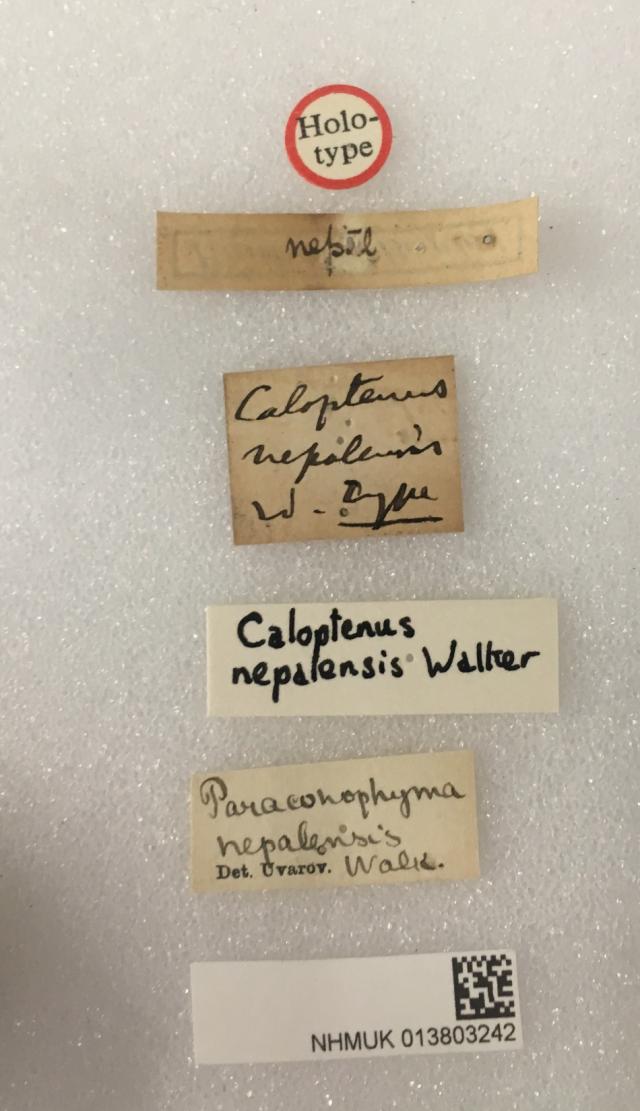 Holo-
type
nepāl
Caloptenus
nepalensis
W. Type
Caloptenus
nepalensis Walker
Paraconophyma
nepalensis
Det. Uvarov. Walk.
NHMUK 013803242